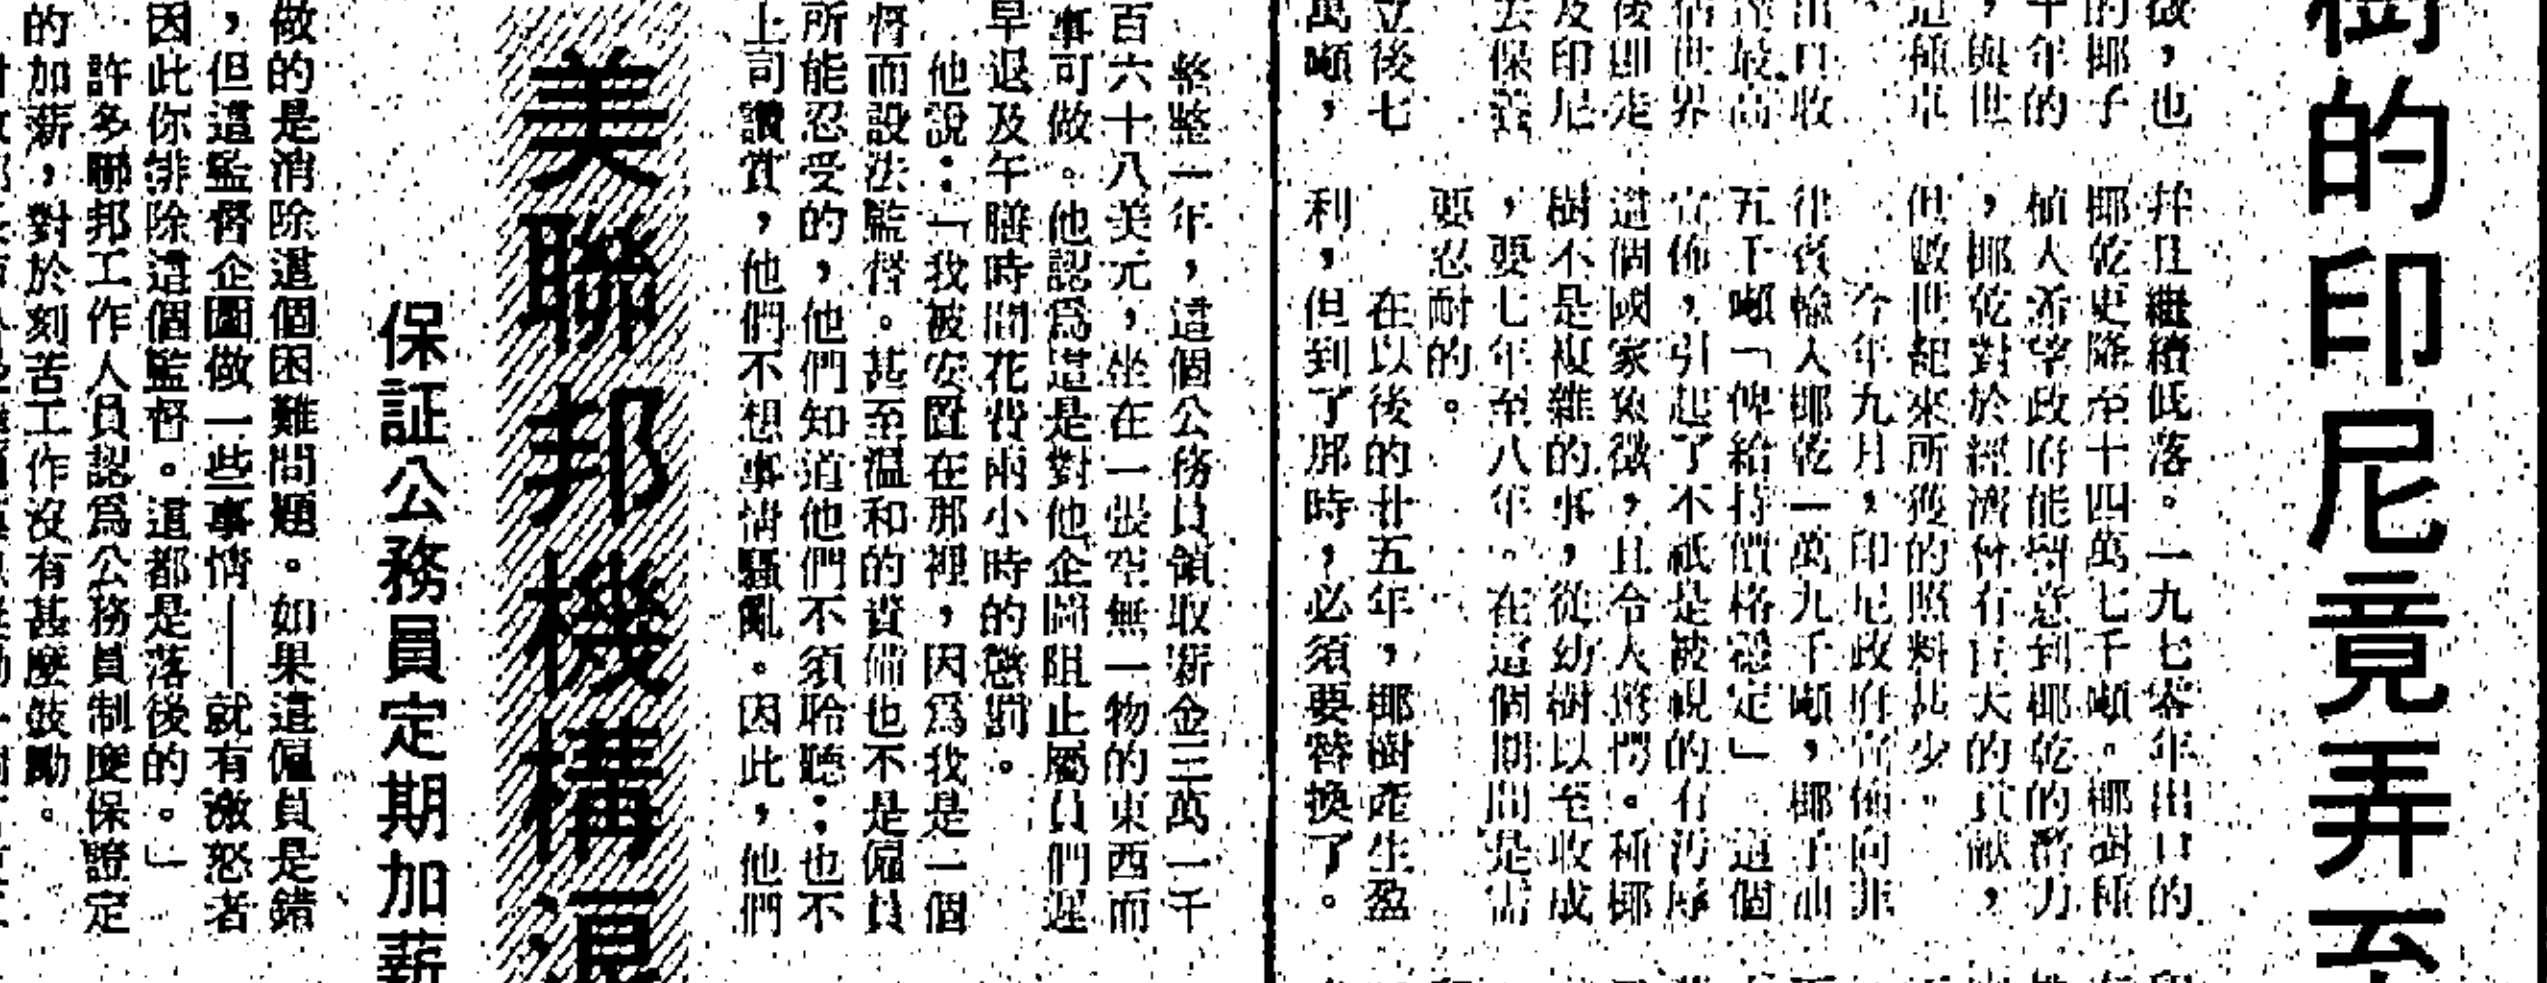 樹的印尼竟弄去
微，也
的椰子
十年的
，與世
這種東
出口收
達最高
佔世界
後即走
及印尼
去保養
立後七
萬噸，
幷且繼續低落。一九七零年出口的
椰乾更降至十四萬七千噸。椰樹種
植人希望政府能留意到椰乾的潛力
，椰乾對於經濟會有巨大的貢献，
但數世紀來所獲的照料甚少。
今年九月，印尼政府宣佈向非
律賓輸入椰乾一萬九千噸，椰子油
五千噸「俾給持價格穩定」。這個
宣佈，引起了不祇是被視的有汚辱
這個國家象徵，且令人驚愕。種椰
樹不是複雜的事，從幼樹以至收成
，要七年至八年。在這個期間是需
要忍耐的。
在以後的廿五年，椰樹產生盈
利，但到了那時，必須要替換了。
整整一年，這個公務員領取薪金三萬一千
百六十八美元，坐在一張空無一物的東西而
事可做。他認爲這是對他企圖阻止屬員們遲
早退及午膳時間花費兩小時的懲罰。
他說：「我被安置在那裡，因爲我是一個
督而設法監督。甚至溫和的責備也不是僱員
所能忍受的，他們知道他們不須聆聽；也不
上司讚賞，他們不想事情騷亂。因此，他們
美聯邦機構浪
保証公務員定期加薪
做的是消除這個困難問題。如果這僱員是錯
，但這監督企圖做一些事情——就有激怒者
因此你排除這個監督。這都是落後的。」
許多聯邦工作人員認爲公務員制度保證定
的加薪，對於刻苦工作沒有甚麼鼓勵。